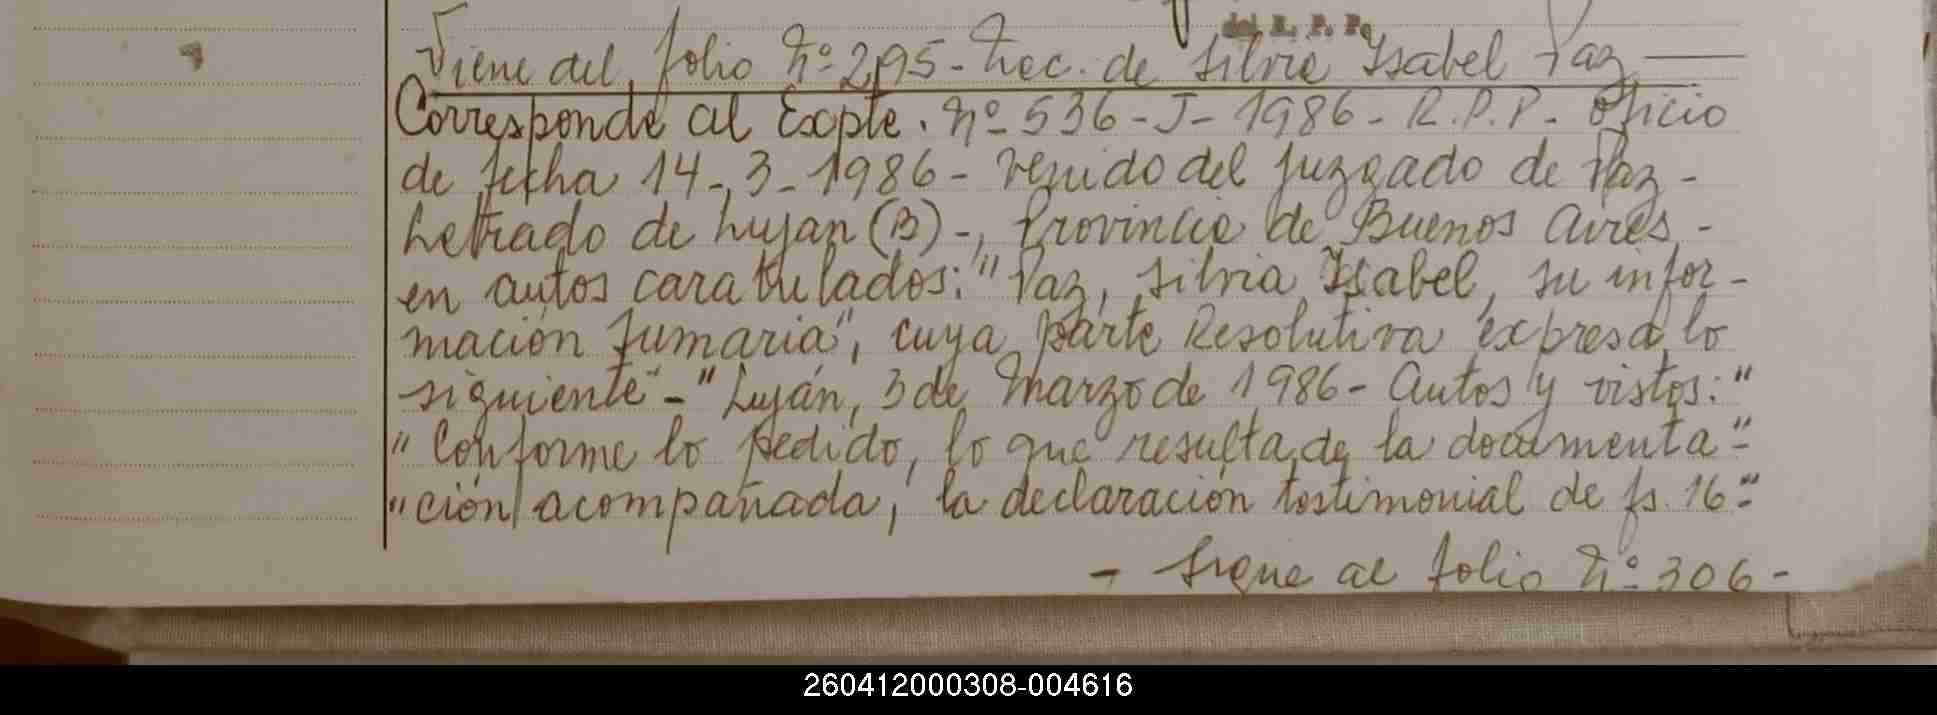 del R. P. P.
Viene del folio Nº 295 - Nac. de Silvia Isabel Paz
Corresponde al Expte. Nº 536 - J - 1986 - R.P.P. - Oficio
de fecha 14-3-1986 - venido del Juzgado de Paz -
Letrado de Luján (B) -, Provincia de Buenos Aires, -
en autos caratulados: "Paz, Silvia Isabel, su infor-
mación sumaria", cuya parte Resolutiva expresa lo
siguiente - "Luján, 3 de Marzo de 1986 - Autos y vistos: "
"Conforme lo pedido, lo que resulta de la documenta"-
"ción acompañada, la declaración testimonial de fs. 16 "-
- Sigue al folio Nº 306 -
260412000308-004616